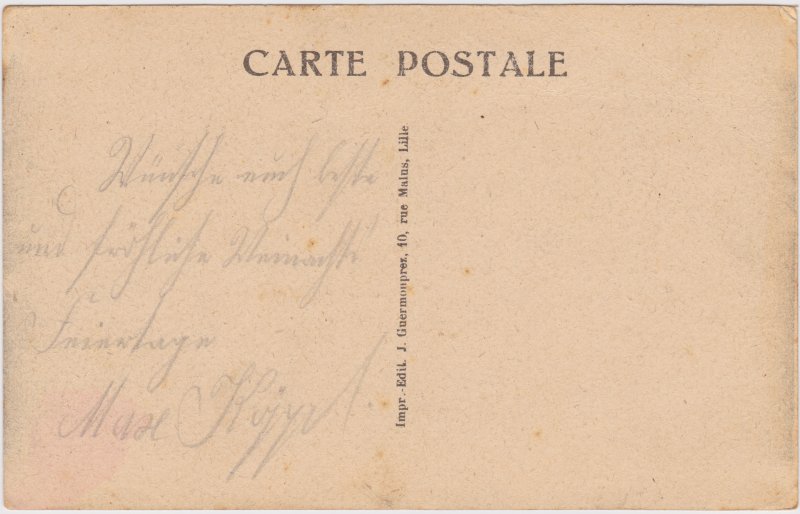 CARTE POSTALE
Wünsche euch beste
und fröhliche Weinachts
Feiertage
Max
Impr.-Edit. J. Guermonprez, 10, rue Malus, Lille